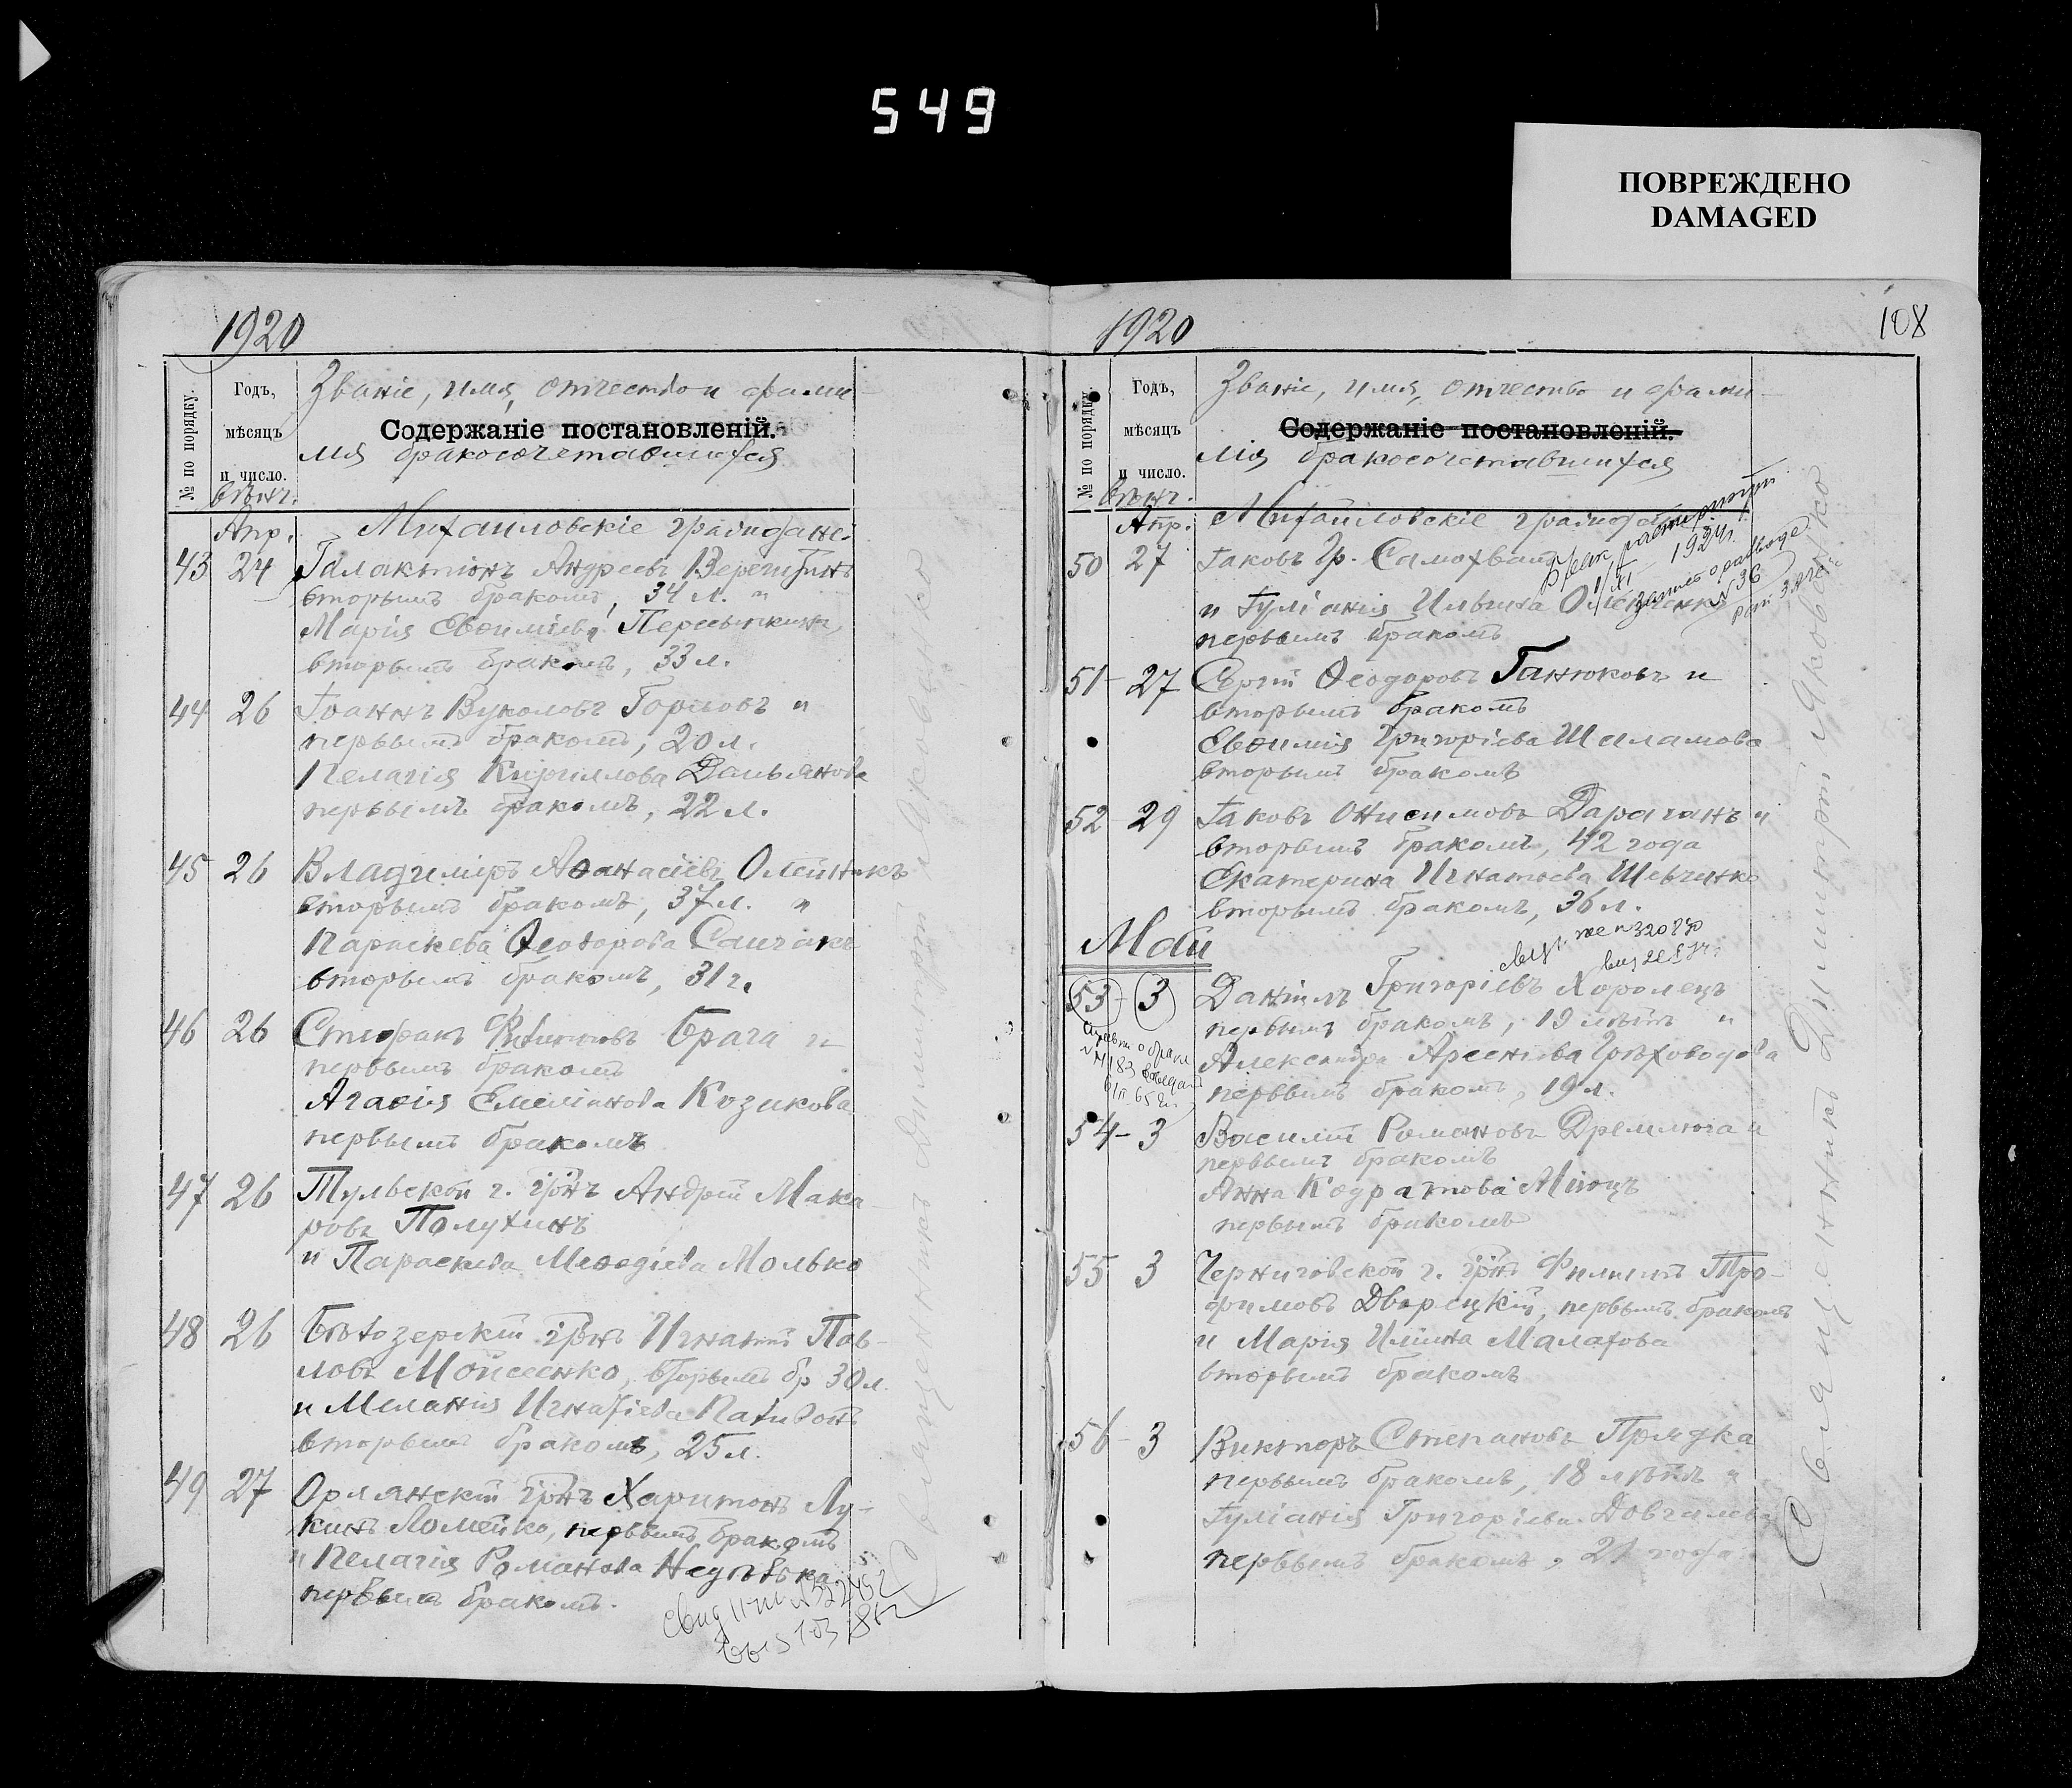 549
ПОВРЕЖДЕНО
DAMAGED
1920
№ по порядку.
Годъ,
мѣсяцъ
и число.
вѣнч.
Званіе, имя, отчество и фами-
Содержаніе постановленій.
лія бракосочетавшихся
Апр. Михайловскіе граждане:
43 24 Галактіонъ Андреевъ Верещагинъ
вторымъ бракомъ, 34 л. и
Марія Евѳиміева
вторымъ бракомъ, 33 л.
44 26 Іоаннъ Вуколовъ Горловъ и
первымъ бракомъ, 20 л.
Пелагія Кириллова Дамьянова
первымъ бракомъ, 22 л.
45 26 Владиміръ Аѳанасіевъ Олейникъ
вторымъ бракомъ, 37 л. и
Параскева Ѳеодорова
вторымъ бракомъ, 31 г.
46 26 Стефанъ Филиповъ Брага и
первымъ бракомъ
Агаѳія Емеліанова Козикова
первымъ бракомъ
47 26 Тульской г. грнъ Андрей Мака-
ровъ Полухинъ
и Параскева Меѳодіева Молько
48 26 Бѣлозерскій грнъ Игнатій Пав-
ловъ Мойсеенко, вторымъ бр 30 л.
и Меланія Игнатіева
вторымъ бракомъ, 25 л.
49 27 Орлянскій грнъ Харитонъ Лу-
кинъ Ломейко, первымъ бракомъ
и Пелагія Романова Недѣлька
первымъ бракомъ.
Священникъ Димитрій Яковенко
1920
108
№ по порядку.
Годъ,
мѣсяцъ
и число.
вѣнч.
Званіе, имя, отчество и фами-
Содержаніе постановленій.
лія бракосочетавшихся
Апр. Михайловскіе граждане
50 27 Іаковъ Гр. Самохвалъ
и Іуліанія Ильина
первымъ бракомъ
1924 г.
запись о разводе
N 36
51 - 27 Сергій Ѳеодоровъ Ганюковъ и
вторымъ бракомъ
Евѳимія Григоріева Шаламова
вторымъ бракомъ
52 29 Іаковъ Онисимовъ Дараганъ и
вторымъ бракомъ, 42 года
Екатерина Игнатьева Шевченко
вторымъ бракомъ, 36 л.
Май
53 - 3 Даніилъ Григоріевъ Хоролецъ
первымъ бракомъ, 19 лѣтъ и
Александра Арсеніева Грѣховодова
первымъ бракомъ, 19 л.
54 - 3 Василій Романовъ Дремлюга и
первымъ бракомъ
Анна Кодратова
первымъ бракомъ
55 3 Черниговской г. грнъ Филиппъ Тро-
фимовъ Дворецкій, первымъ бракомъ
и Марія Иліина Малахова
вторымъ бракомъ
56 - 3 Викторъ Степановъ Прядка
первымъ бракомъ, 18 лѣтъ и
Іуліанія Григоріева
первымъ бракомъ, 21 года
Священникъ Димитрій Яковенко